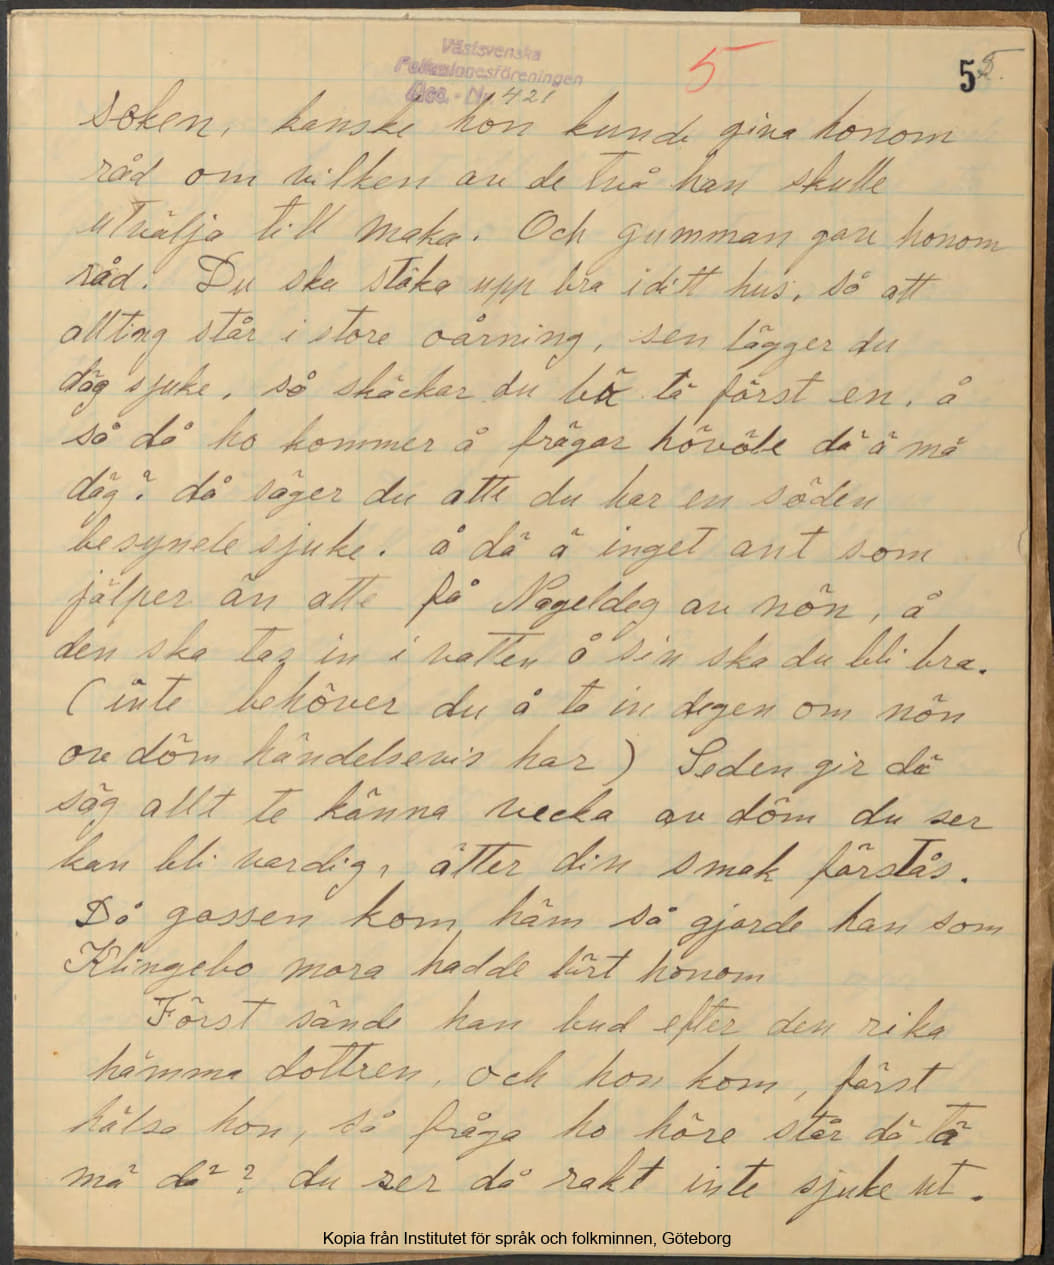 Västsvenska
Folkminnesföreningen
Acc. - Nr. 421
5
5
soken, kanske hon kunde giva honom
råd om vilken av de två han skulle
utvälja till maka. Och gumman gav honom
råd. Du ska stöka upp bra i ditt hus, så att
allting står i store oårning, sen lägger du
däg sjuke, så skäckar du bö tä först en, å
så då ho kommer å frågar hövöle dä ä mä
däg? då säger du atte du har en söden
besynele sjuke. å dä ä inget ant som
jälper än atte få Nageldeg av nön, å
den ska tas in i vatten å sin ska du bli bra.
(inte behöver du å ta in degen om nön
ov döm händelsevis har) Seden gir dä
säg allt te känna vecka av döm du ser
kan bli vardig, ätter din smak förstås.
Då gossen kom häm så gjorde han som
Klingebo mora hadde lärt honom
Först sände han bud efter den rika
hämma dottren, och hon kom, först
hälsa hon, så fråga ho höre står dä tä
mä dä? du ser då rakt inte sjuke ut.
Kopia från Institutet för språk och folkminnen, Göteborg